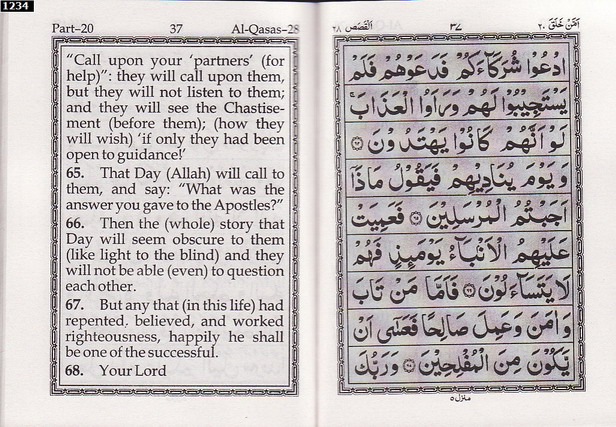 1234
Part–20 37 Al-Qasas–28
“Call upon your ‘partners’ (for
help)”: they will call upon them,
but they will not listen to them;
and they will see the Chastise-
ment (before them); (how they
will wish) ‘if only they had been
open to guidance!’
65. That Day (Allah) will call to
them, and say: “What was the
answer you gave to the Apostles?”
66. Then the (whole) story that
Day will seem obscure to them
(like light to the blind) and they
will not be able (even) to question
each other.
67. But any that (in this life) had
repented, believed, and worked
righteousness, happily he shall
be one of the successful.
68. Your Lord
اَمَّنْ خَلَقَ ٢٠ ٣٧ اَلْقَصَص ٢٨
ادْعُوْا شُرَكَآءَكُمْ فَدَعَوْهُمْ فَلَمْ
يَسْتَجِيْبُوْا لَهُمْ وَرَاَوُا الْعَذَابَ ۚ
لَوْ اَنَّهُمْ كَانُوْا يَهْتَدُوْنَ ﴿٦٤﴾
وَيَوْمَ يُنَادِيْهِمْ فَيَقُوْلُ مَاذَآ
اَجَبْتُمُ الْمُرْسَلِيْنَ ﴿٦٥﴾ فَعَمِيَتْ
عَلَيْهِمُ الْاَنْۢبَآءُ يَوْمَئِذٍ فَهُمْ
لَا يَتَسَآءَلُوْنَ ﴿٦٦﴾ فَاَمَّا مَنْ تَابَ
وَاٰمَنَ وَعَمِلَ صَالِحًا فَعَسٰٓى اَنْ
يَّكُوْنَ مِنَ الْمُفْلِحِيْنَ ﴿٦٧﴾ وَرَبُّكَ
منزل ٥